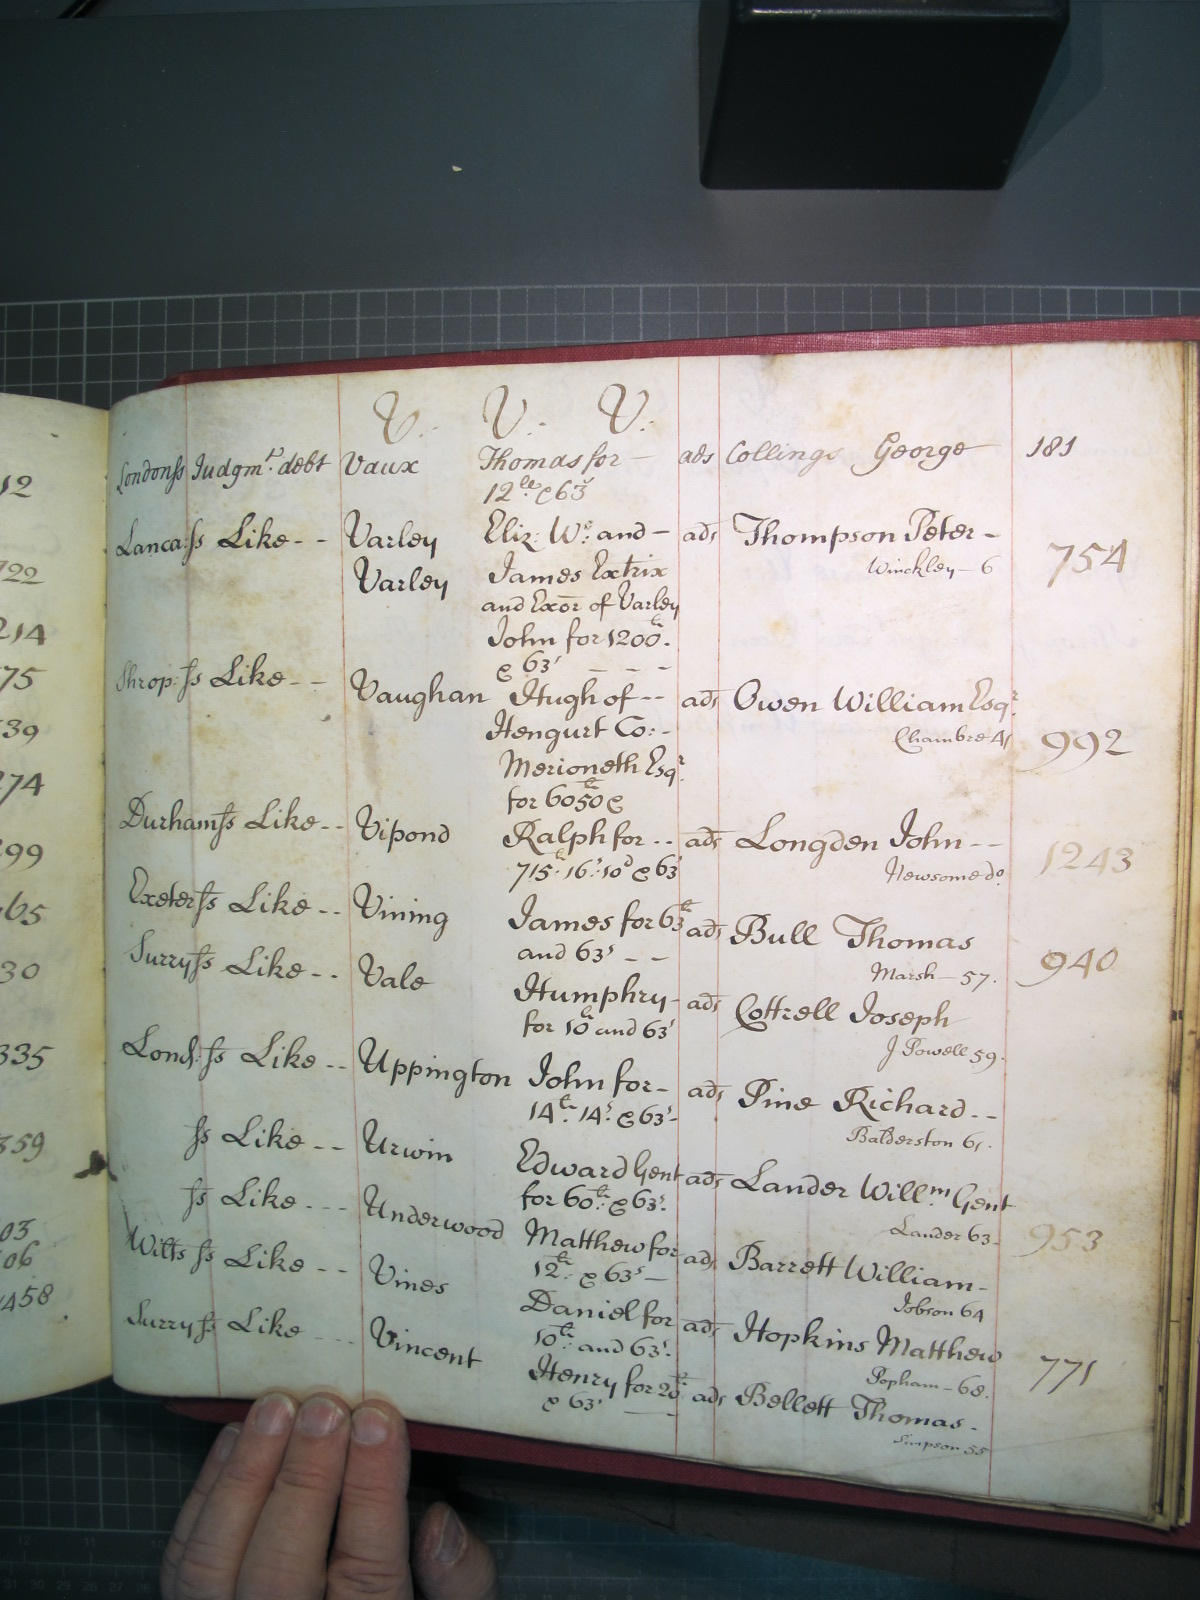 V. V. V.
Londonss Judgmt. debt Vaux Thomas for ads Collings George 181
12li e 63s
Lanca:ss Like - - Varley Eliz: Wo: and - ads Thompson Peter -
Varley James Extrix Winckley - 6 754
and Exor of Varley
John for 1200li.
e 63s - - -
Shrop:ss Like - - Vaughan Hugh of - - ads Owen William Esqr.
Hengurt Co: - Chambre 41 992
Merioneth Esqr.
for 6050li e
Durhamss Like - - Vipond Ralph for - - ads Longden John - -
715li: 16s: 10d e 63s Newsome do. 1243
Exeterss Like - - Vining James for 63li ads Bull Thomas
and 63s - - Marsh - 57. 940
Surryss Like - - Vale Humphry - ads Cottrell Joseph
for 10li and 63s J Powell 59.
Lond:ss Like - - Uppington John for - ads Pine Richard - -
14li: 14s: e 63s - Balderston 61.
ss Like - - Urwin Edward Gent ads Lander Willm Gent
for 60li: e 63s. Lander 63 - 953
ss Like - - - Underwood Matthew for ads Barrett William -
12li: e 63s - Jobson 64
Wilts ss Like - - Vines Daniel for ads Hopkins Matthew
10li: and 63s. Popham - 68. 771
Surryss Like - - - Vincent Henry for 20li ads Bellett Thomas.
e 63s - Simpson 55
12
722
214
75
39
274
99
65
30
335
359
03
06
1458